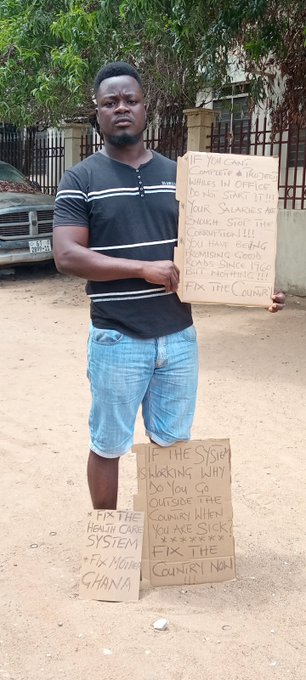 IF YOU CAN'T
COMPLETE A PROJECT
WHILES IN OFFICE
DO NO START IT!!!
YOUR SALARIES ARE
ENOUGH STOP THE
CORRUPTION!!!!
YOU HAVE BEING
PROMISING GOOD
ROADS SINCE 1960
BUT NOTHING!!!
FIX THE COUNTRY
IF THE SYSTEM
IS WORKING WHY
DO YOU GO
OUTSIDE THE
COUNTRY WHEN
YOU ARE SICK?
*******
FIX THE
COUNTRY NOW
!!!
* FIX THE
HEALTH CARE
SYSTEM
* FIX MOTHER
GHANA